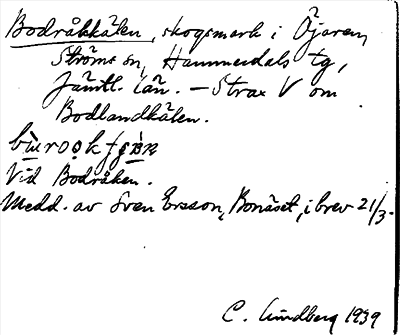 Bodråkkälen, skogsmark i Öjaren,
Ströms sn, Hammerdals tg,
Jämtl. län. – Strax V om
Bodlandkälen.
Vid Bodråken.
Medd. av Sven Ersson, Bonäset, i brev 21/3.
C. Lundberg 1939